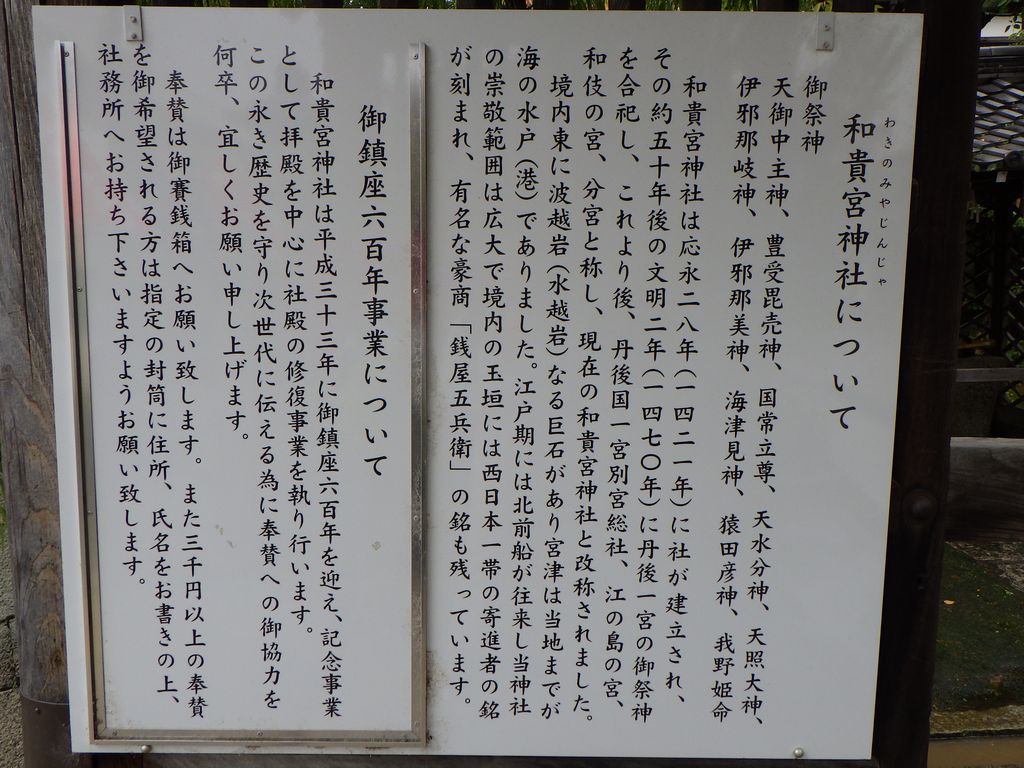 わきのみやじんじゃ
和貴宮神社について
御祭神
天御中主神、豊受毘売神、国常立尊、天水分神、天照大神、
伊邪那岐神、伊邪那美神、海津見神、猿田彦神、我野姫命
和貴宮神社は応永二八年(一四二一年)に社が建立され、
その約五十年後の文明二年(一四七〇年)に丹後一宮の御祭神
を合祀し、これより後、丹後国一宮別宮総社、江の島の宮、
和伎の宮、分宮と称し、現在の和貴宮神社と改称されました。
境内東に波越岩(水越岩)なる巨石があり宮津は当地までが
海の水戸(港)でありました。江戸期には北前船が往来し当神社
の崇敬範囲は広大で境内の玉垣には西日本一帯の寄進者の銘
が刻まれ、有名な豪商「銭屋五兵衛」の銘も残っています。
御鎮座六百年事業について
和貴宮神社は平成三十三年に御鎮座六百年を迎え、記念事業
として拝殿を中心に社殿の修復事業を執り行います。
この永き歴史を守り次世代に伝える為に奉賛への御協力を
何卒、宜しくお願い申し上げます。
奉賛は御賽銭箱へお願い致します。また三千円以上の奉賛
を御希望される方は指定の封筒に住所、氏名をお書きの上、
社務所へお持ち下さいますようお願い致します。